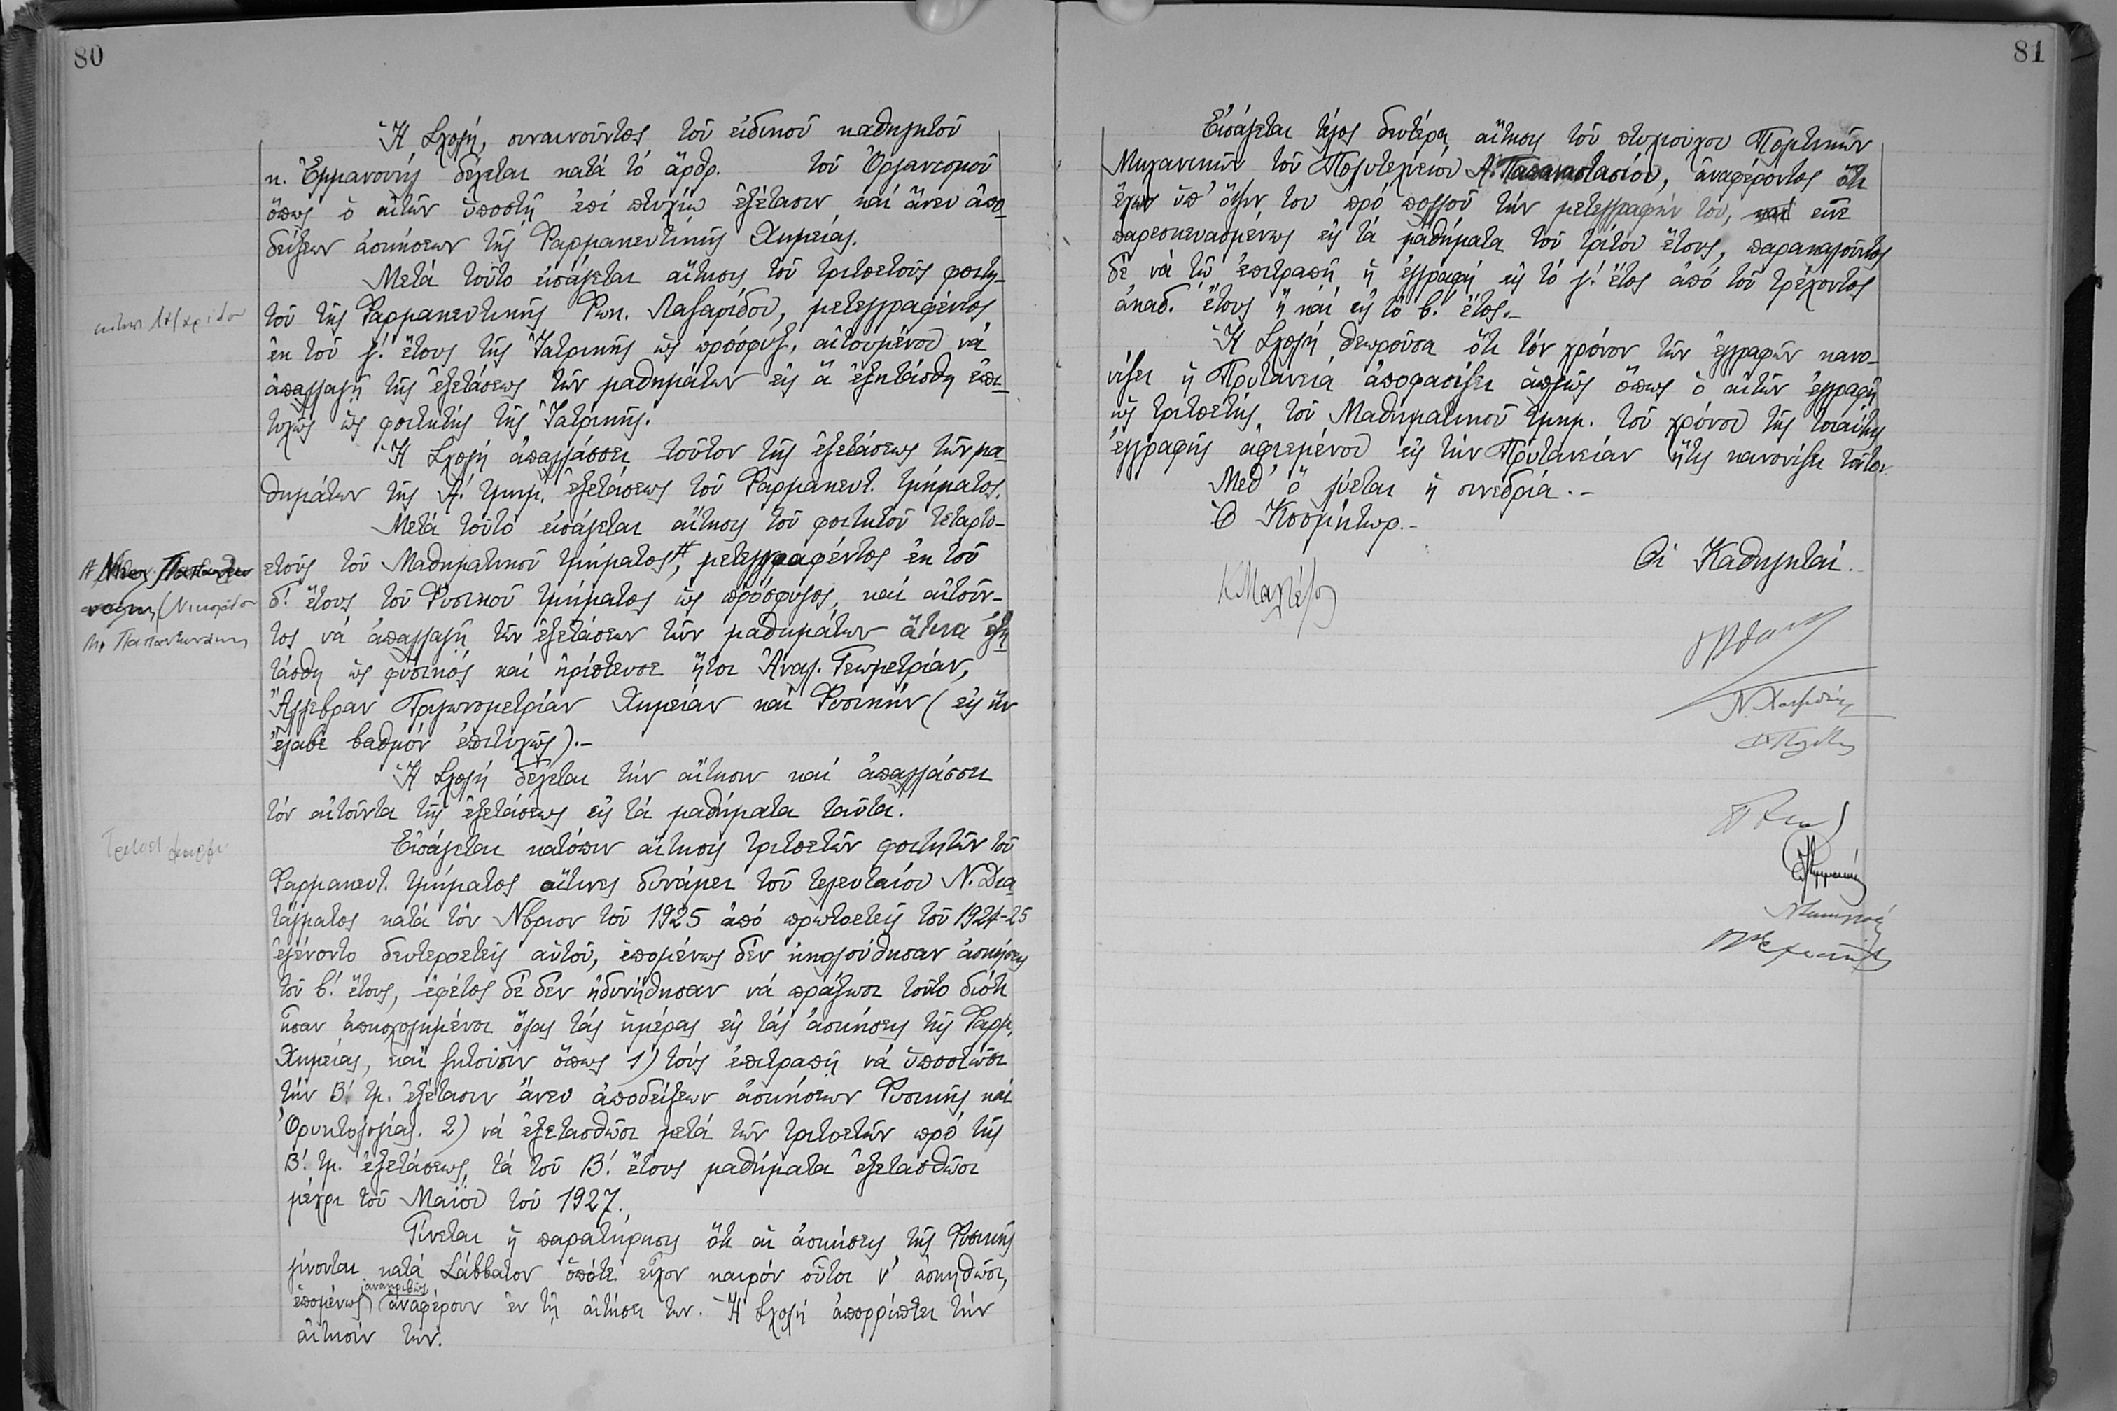 80
Ἡ Σχολή, συναινοῦντος τοῦ εἰδικοῦ καθηγητοῦ
κ. Ἐμμανουήλ δέχεται κατά τό ἄρθρ. τοῦ Ὀργανισμοῦ
ὅπως ὁ αἰτῶν ὑποστῇ ἐπί πτυχίῳ ἐξέτασιν καί ἄνευ ἀπο
δείξεων ἀσκήσεων τῆς Φαρμακευτικῆς Χημείας.
Μετά τοῦτο εἰσάγεται αἴτησις τοῦ τριτοετοῦς φοιτη-
αἴτησ. Λαζαρίδου
τοῦ τῆς Φαρμακευτικῆς Φωκ. Λαζαρίδου, μετεγγραφέντος
ἐκ τοῦ γ΄. ἔτους τῆς Ἰατρικῆς ὡς πρόσφυξ, αἰτουμένου νά
ἀπαλλαγῇ τῆς ἐξετάσεως τῶν μαθημάτων εἰς ἅ ἐξητάσθη ἐπι-
τυχῶς ὡς φοιτητής τῆς Ἰατρικῆς.
Ἡ Σχολή ἀπαλλάσσει τοῦτον τῆς ἐξετάσεως τῶν μα
θημάτων τῆς Α΄. τμημ. ἐξετάσεως τοῦ Φαρμακευτ. τμήματος.
Μετά τοῦτο εἰσάγεται αἴτησις τοῦ φοιτητοῦ τεταρτο-
ετοῦς τοῦ Μαθηματικοῦ τμήματος #, μετεγγραφέντος ἐκ τοῦ
δ΄. ἔτους τοῦ Φυσικοῦ τμήματος ὡς πρόσφυγος, καί αἰτοῦν-
τος νά ἀπαλλαγῇ τῶν ἐξετάσεων τῶν μαθημάτων ἅτινα ἐξη
Παπαντωνάκης
τάσθη ὡς φυσικός καί ἠρίστευσε ἤτοι Ἀναλ. Γεωμετρίαν,
Ἄλγεβραν Τριγωνομετρίαν Χημείαν καί Φυσικήν (εἰς ἥν
ἔλαβε βαθμόν ἐπιτυχῶς).-
Ἡ Σχολή δέχεται τήν αἴτησιν καί ἀπαλλάσσει
τόν αἰτοῦντα τῆς ἐξετάσεως εἰς τά μαθήματα ταῦτα.
Εἰσάγεται κατόπιν αἴτησις τριτοετῶν φοιτητῶν τοῦ
Φαρμακευτ. τμήματος οἵτινες δυνάμει τοῦ τελευταίου Ν. Δια
τάγματος κατά τόν Νβριον τοῦ 1925 ἀπό πρωτοετεῖς τοῦ 1924-25
ἐγένοντο δευτεροετεῖς αὐτοῦ, ἑπομένως δέν ἠκολούθησαν ἀσκήσεις
τοῦ β΄. ἔτους, ἐφέτος δέ δέν ἠδυνήθησαν νά πράξωσι τοῦτο διότι
ἦσαν ἀπησχολημένοι ὅλας τάς ἡμέρας εἰς τάς ἀσκήσεις τῆς Φαρμ.
Χημείας, καί ζητοῦσιν ὅπως 1) τούς ἐπιτραπῇ νά ὑποστῶσι
τήν Β΄. τμ. ἐξέτασιν ἄνευ ἀποδείξεων ἀσκήσεων Φυσικῆς καί
Ὀρυκτολογίας. 2) νά ἐξετασθῶσι μετά τῶν τριτοετῶν πρό τῆς
Β΄. τμ. ἐξετάσεως, τά τοῦ Β΄. ἔτους μαθήματα ἐξετασθῶσι
μέχρι τοῦ Μαΐου τοῦ 1927.
Γίνεται ἡ παρατήρησις ὅτι αἱ ἀσκήσεις τῆς Φυσικῆς
γίνονται κατά Σάββατον ὁπότε εἶχον καιρόν οὗτοι ν' ἀσκηθῶσι,
ἑπομένως ἀνακριβῶς ἀναφέρουν ἐν τῇ αἰτήσει των. Ἡ Σχολή ἀπορρίπτει τήν
αἴτησίν των.
81
Εἰσάγεται τέλος δευτέρα αἴτησις τοῦ πτυχιούχου Πολιτικῶν
Μηχανικῶν τοῦ Πολυτεχνείου Α. Παπαναστασίου, ἀναφέροντος ὅτι
ἔχων ὑπ' ὄψιν του πρό πολλοῦ τήν μετεγγραφήν του, καί εἶνε
παρεσκευασμένος εἰς τά μαθήματα τοῦ τρίτου ἔτους, παρακαλοῦντος
δέ νά τῷ ἐπιτραπῇ ἡ ἐγγραφή εἰς τό γ΄. ἔτος ἀπό τοῦ τρέχοντος
ἀκαδ. ἔτους ἤ καί εἰς τό β΄. ἔτος.-
Ἡ Σχολή θεωροῦσα ὅτι τόν χρόνον τῶν ἐγγραφῶν κανο-
νίζει ἡ Πρυτανεία ἀποφασίζει ἁπλῶς ὅπως ὁ αἰτῶν ἐγγραφῇ
ὡς τριτοετής τοῦ Μαθηματικοῦ τμημ. τοῦ χρόνου τῆς τοιαύτης
ἐγγραφῆς ἀφιεμένου εἰς τήν Πρυτανείαν ἥτις κανονίζει τοῦτον.
Μεθ' ὅ λύεται ἡ συνεδρία.-
Ὁ Κοσμήτωρ.-
Οἱ Καθηγηταί.
Κ Μαλτέζος